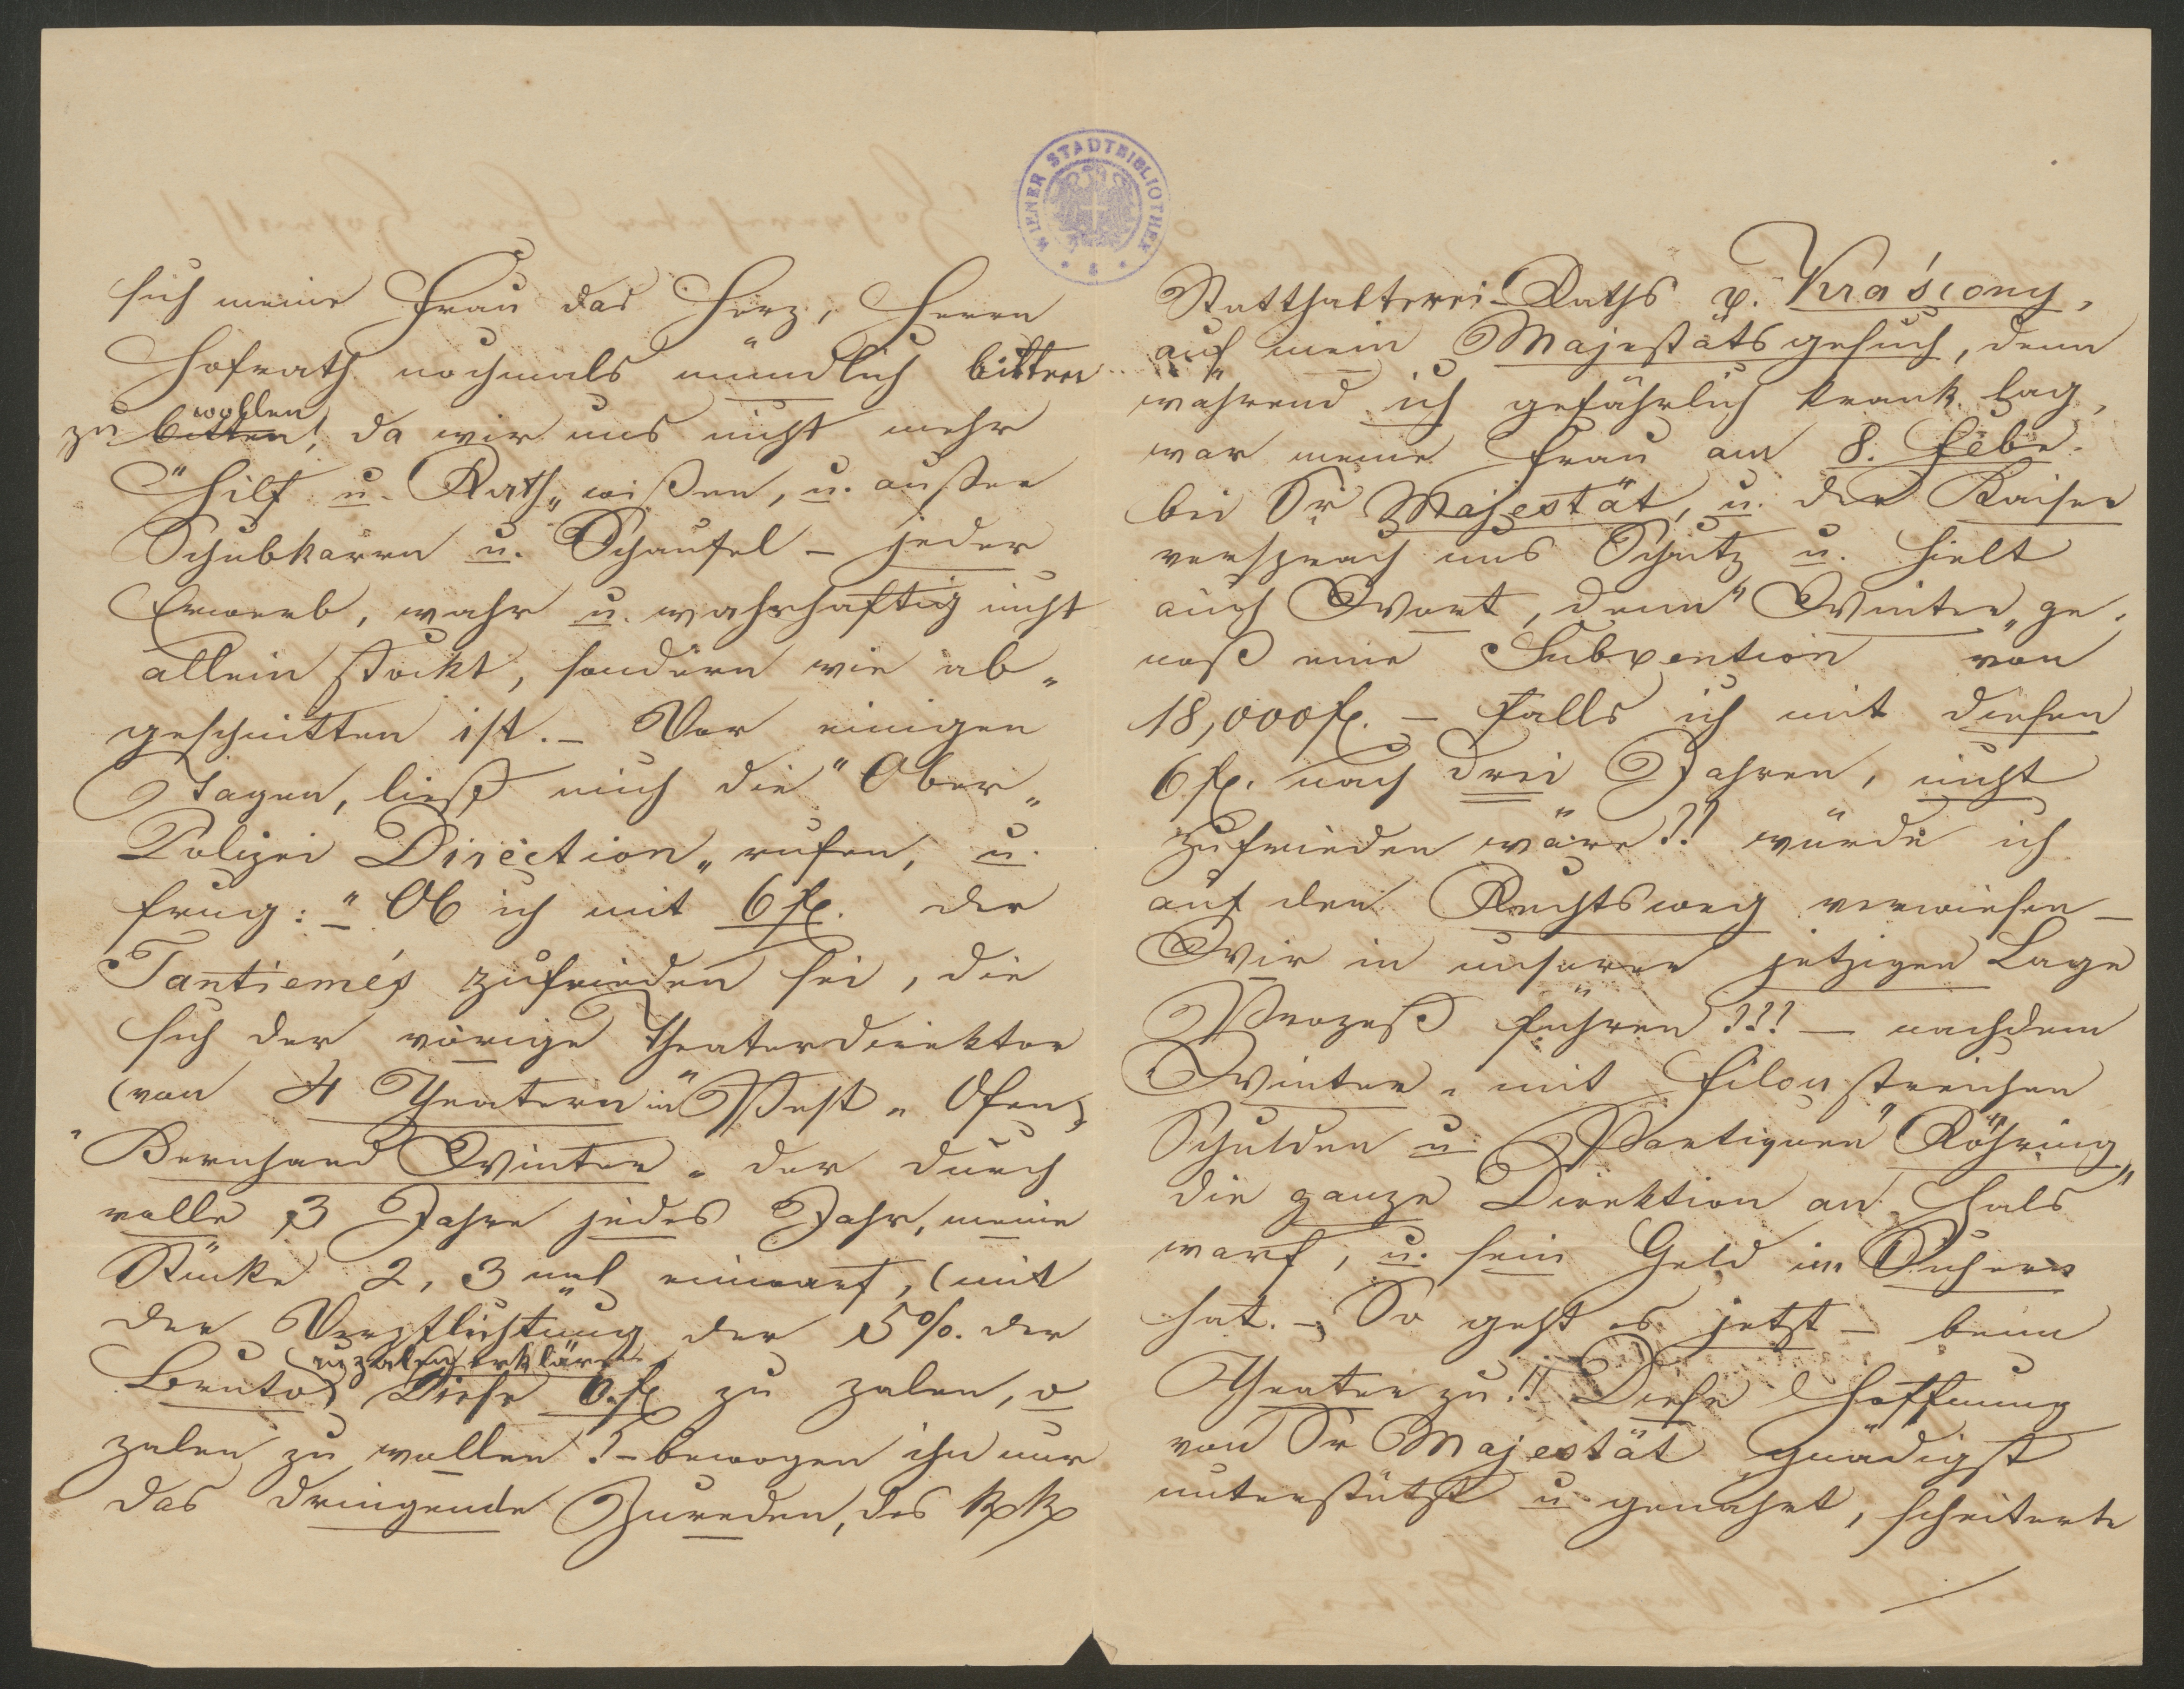 WIENER STADTBIBLIOTHEK
sich meine Frau das Herz, Herrn
Hofrath nochmals mündlich bitten
zu bitten wollen!, da wir uns nicht mehr
"Hilf u. Rath„ wißen, u. außer
Schubkarrn u. Schaufel – jeder
Erwerb, wahr u. wahrhaftig nicht
allein stockt, sondern wie ab„
geschnitten ist. – Vor einigen
Tagen, ließ mich die "Ober„
Polizei Direction„ rufen, u.
frug: "Ob ich mit 6 fl. der
Tantiemés zufrieden sei, die
sich der vorige Theaterdirektor
(von 4 Theatern in "Pest„ Ofen,
"Bernhard Winter„ der durch
volle 3 Jahre jedes Jahr, meine
Stücke 2, 3 mal einwarf, (mit
der Verpflichtung der 5%. der
Bruto) zalen erklärte
Diese 6 fl. zu zalen, o
zalen zu wollen! – bewogen ihn nur
das dringende Zureden, des kk
Statthalterei-Raths v. Kraścony,
auf mein Majestätsgesuch, denn
während ich gefährlich krank lag,
war meine Frau am 8. Febr.
bei Sr Majestät, u. der Kaiser
versprach uns Schutz u. hielt
auch Wort, denn "Winter„ ge„
noß eine Subvention von
18,000 fl. – Falls ich mit diesen
6 fl. nach drei Jahren, nicht
zufrieden wäre?! würde ich
auf den Rechtsweg verwiesen –
Wir in unserer jetzigen Lage
Prozeß führen?!! – nachdem
"Winter„ mit Filoustreichen
Schulden u. "Röhring„
die ganze Direktion an Hals
warf, u. sein Geld im
hat. – So geht es jetzt – beim
Theater zu!! Diese Hoffnung
von Sr Majestät gnädigst
unterstützt u. genährt, scheiterte